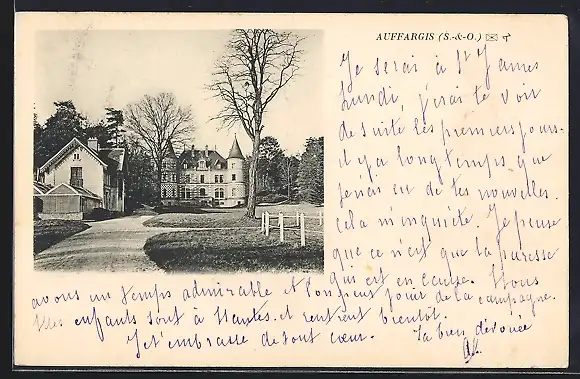 AUFFARGIS (S.-&-O.)
Je serai à St James
lundi, j'irai te voir
de suite les premiers jours.
il y a longtemps que
j'ai eu de tes nouvelles.
cela m'inquiète. Je pense
que ce n'est que la paresse
qui est en cause. Nous
avons un temps admirable et l'on peut jouir de la campagne.
Mes enfants sont à Nantes. et rentrent bientôt.
Je t'embrasse de tout cœur. Ta bien dévouée